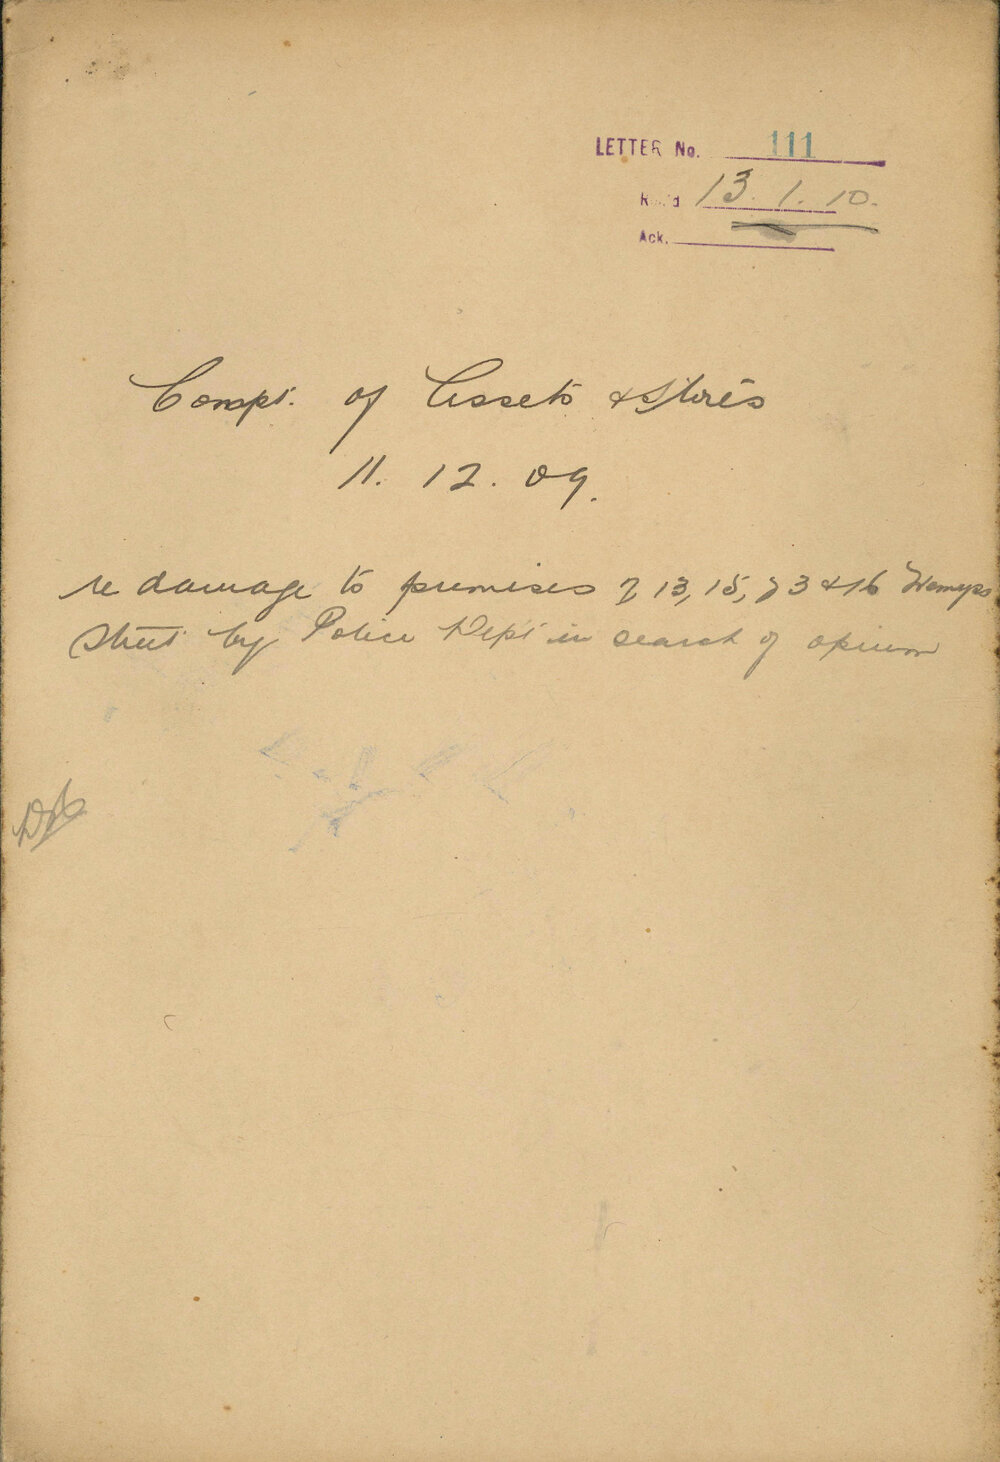 LETTER No. 111
Rec'd 13.1.10.
Ack.
Compt. of Assets & Stores
11.12.09.
re damage to premises of 13, 15, 73 & 76 Wemyss
Street by Police Dept in search of opium